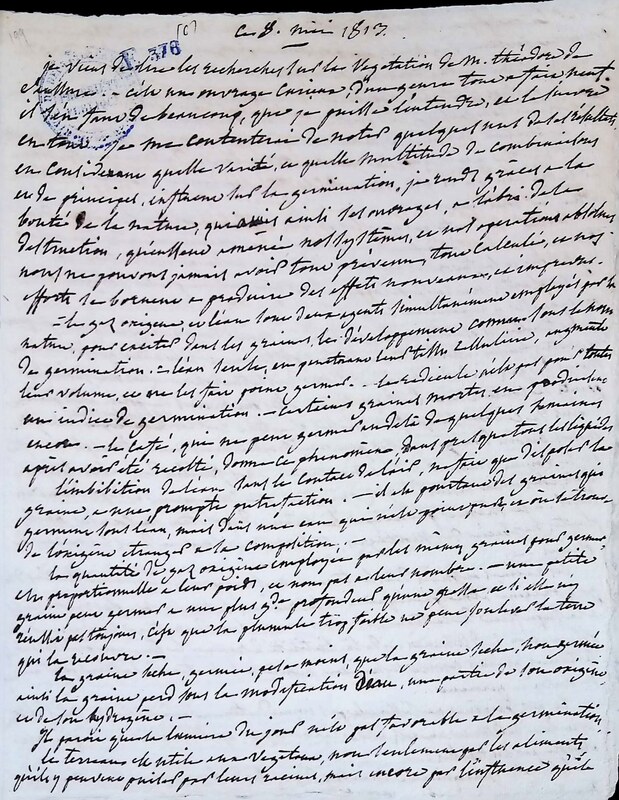 199 [C] 376
ce 8. mai 1813.
je viens de lire les recherches sur la vegetation de m. théodore de
Saussure. – c'est un ouvrage curieux, d'un genre tout a fait neuf
il s'en faut de beaucoup, que je puisse l'entendre, et le suivre
en tout. je me contenterai de noter quelques uns de ses résultats.
en considerant quelle varieté, et quelle multitude de combinaisons
et de principes, influent sur la germination, je rends grâces a la
bonté de la nature, qui a mis ainsi ses ouvrages, a l'abri de la
destruction, qu'eussent amenée nos systèmes, et nos operations absolues
nous ne pouvons jamais avoir tout prévu, tout calculé, et nos
efforts se bornent a produire des effets nouveaux, et imprevus.
– le gaz oxigene, et l'eau sont deux agents simultanément employés par la
nature, pour exciter dans les graines, le développement connu sous le nom
de germination. – l'eau seule, en penetrant leur tissu cellulaire, augmente
leur volume, et ne les fait point germer. – la radicule n'est pas pour toutes
un indice de germination. – certaines graines mortes en produisent
encore. – le café, qui ne peut germer au delà de quelques semaines
après avoir été recolté, donne ce phénomène, dans presque tous les liquides
l'imbibition de l'eau sans le contact de l'air, ne fait que disposer la
graine, a une prompte putrefaction. – il est pourtant des graines qui
germent sous l'eau, mais dans une eau qui n'est point pure, et où se trouve
de l'oxigène etranger a la composition. –
la quantité de gaz oxigène employée par les mêmes graines pour germer
est proportionnelle a leur poids, et non pas a leur nombre. – une petite
graine peut germer a une plus gde profondeur qu'une grosse et si elle n'y
reussit pas toujours, c'est que la plumule trop faible ne peut soulever la terre
qui la recouvre. –
la graine seche, germée, pese moins, que la graine seche, non germée
ainsi la graine perd sous la modification d'eau, une partie de son oxigène,
et de son hydrogène. –
Il paroit que la lumiere du jour n'est pas favorable a la germination.
le terreau est utile aux vegetaux, non seulement par les aliments
qu'ils y peuvent puiser par leurs racines, mais encore par l'influence qu'il a